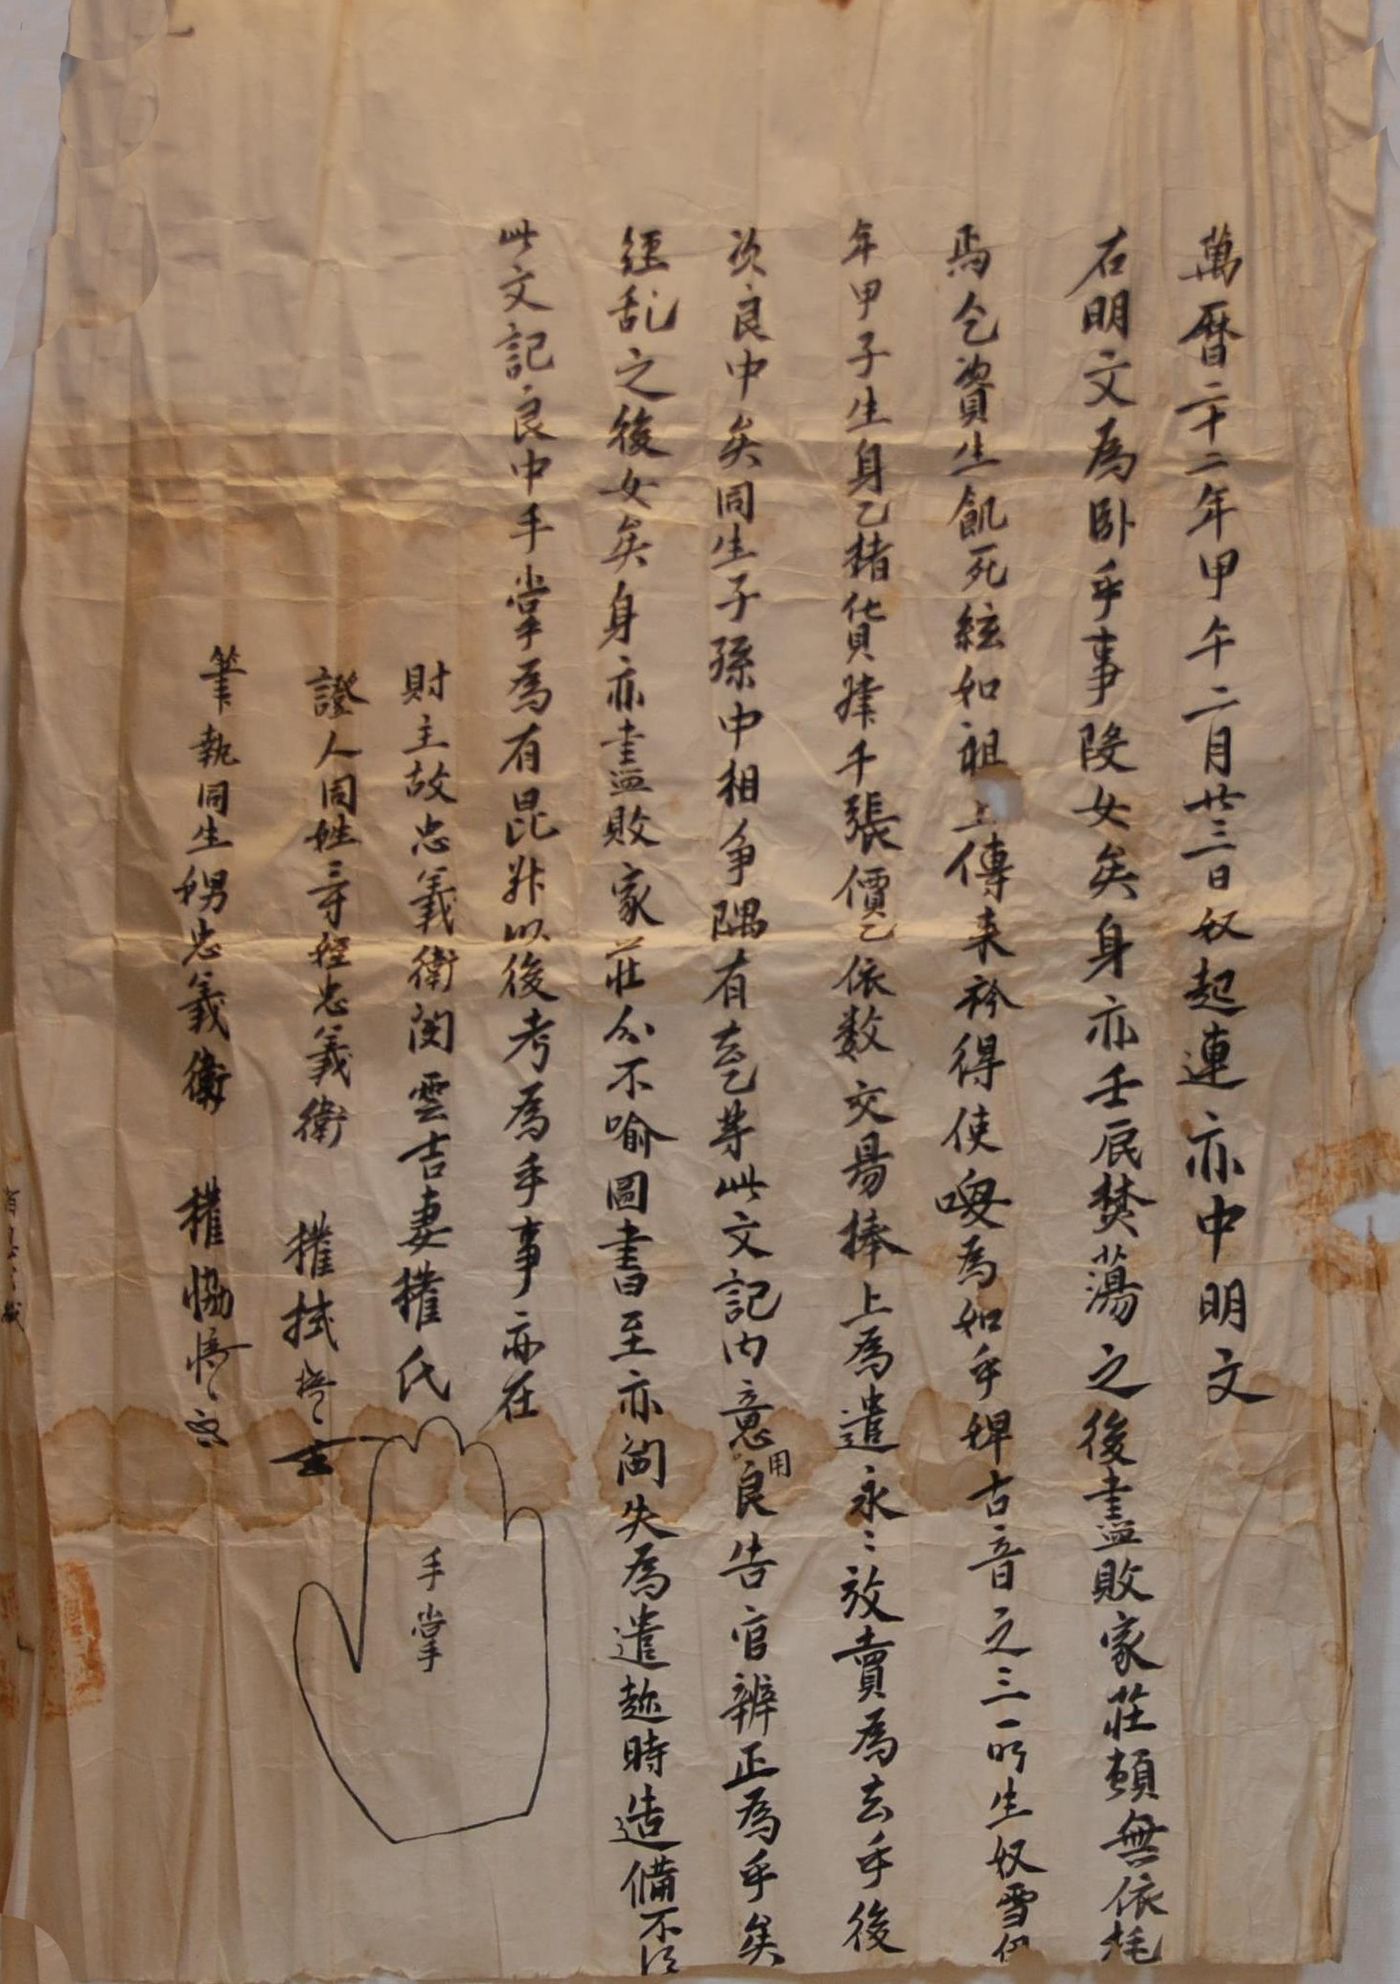 萬曆二十二年甲午二月廿三日奴起連亦中明文
右明文爲卧乎事段女矣身亦壬辰焚蕩之後盡敗家莊頓無依托
焉乞資生飢死絃如祖上傳来衿得使喚爲如乎婢古音之三所生奴雪
年甲子生身乙猪貨肆千張價乙依数交易捧上爲遣永〻放賣爲去乎後
次良中矣同生子孫中相爭隅有去乙等此文記内意用良告官辨正爲乎矣
經乱之後女矣身亦盡敗家莊叱分不喻圖書至亦閪失爲遣趂時造備不
此文記良中手掌爲有昆以後考爲乎事亦在
財主故忠義衛閔雲吉妻權氏
手掌
證人同姓寸姪忠義衛 權拭
筆執同生甥忠義衛 權恊